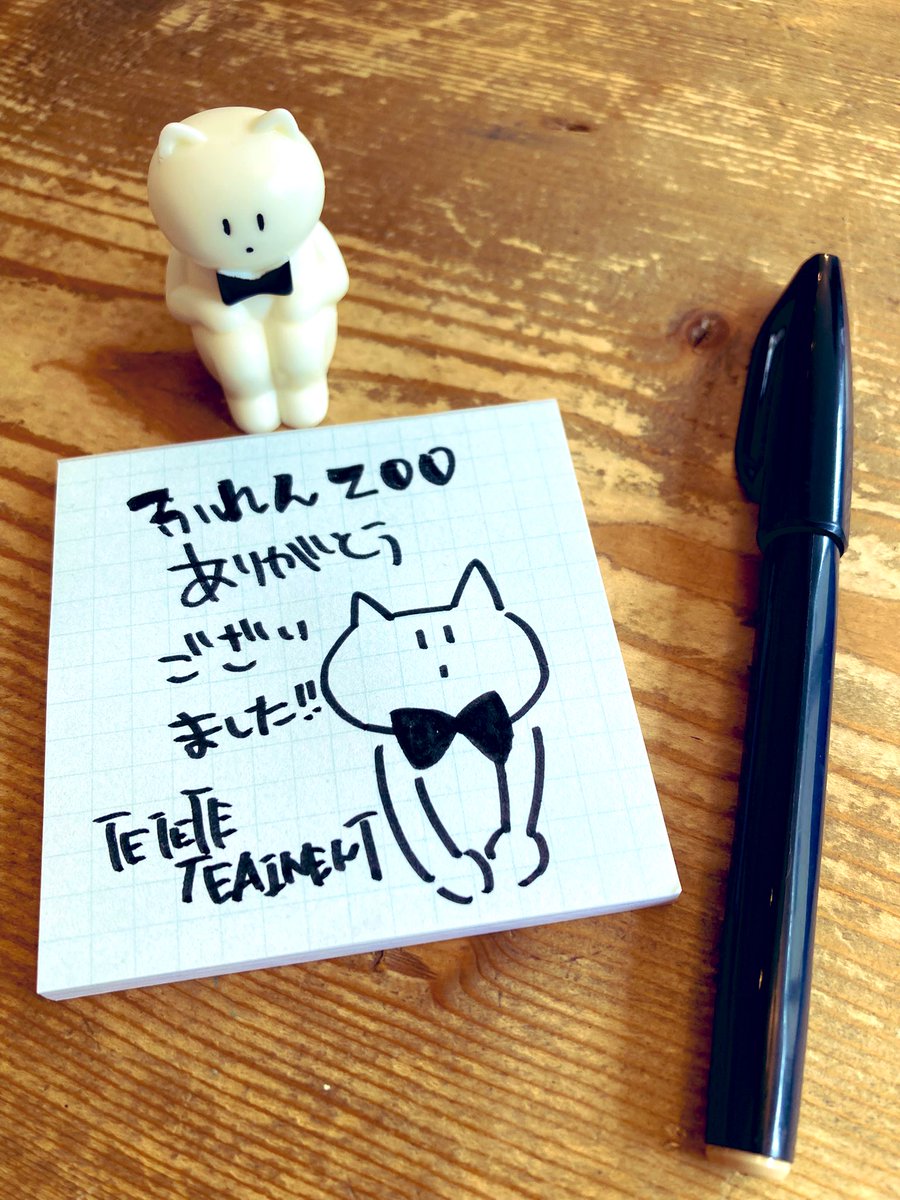 おいれんZOO
ありがとう
ござい
ました!!
TETETE
TEAINENT